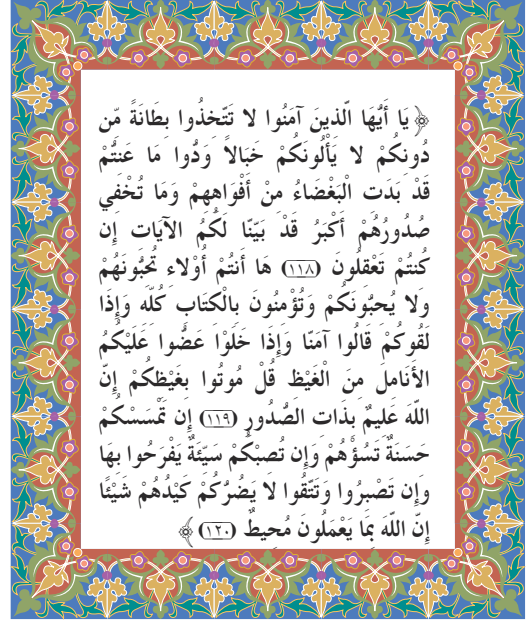 ﴿ يَا أَيُّهَا الَّذِينَ آمَنُوا لا تَتَّخِذُوا بِطَانَةً مِّن
دُونِكُمْ لا يَأْلُونَكُمْ خَبَالاً وَدُّوا مَا عَنِتُّمْ
قَدْ بَدَتِ الْبَغْضَاءُ مِنْ أَفْوَاهِهِمْ وَمَا تُخْفِي
صُدُورُهُمْ أَكْبَرُ قَدْ بَيَّنَّا لَكُمُ الآيَاتِ إِن
كُنتُمْ تَعْقِلُونَ (١١٨) هَا أَنتُمْ أُوْلاءِ تُحِبُّونَهُمْ
وَلا يُحِبُّونَكُمْ وَتُؤْمِنُونَ بِالْكِتَابِ كُلِّهِ وَإِذَا
لَقُوكُمْ قَالُوا آمَنَّا وَإِذَا خَلَوْا عَضُّوا عَلَيْكُمُ
الأَنَامِلَ مِنَ الْغَيْظِ قُلْ مُوتُوا بِغَيْظِكُمْ إِنَّ
اللَّهَ عَلِيمٌ بِذَاتِ الصُّدُورِ (١١٩) إِن تَمْسَسْكُمْ
حَسَنَةٌ تَسُؤْهُمْ وَإِن تُصِبْكُمْ سَيِّئَةٌ يَفْرَحُوا بِهَا
وَإِن تَصْبِرُوا وَتَتَّقُوا لا يَضُرُّكُمْ كَيْدُهُمْ شَيْئًا
إِنَّ اللَّهَ بِمَا يَعْمَلُونَ مُحِيطٌ (١٢٠) ﴾